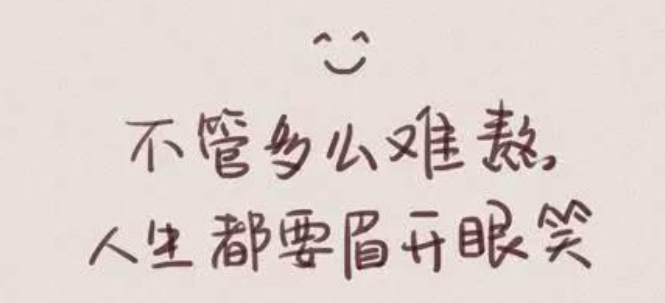 不管多么难熬,
人生都要眉开眼笑